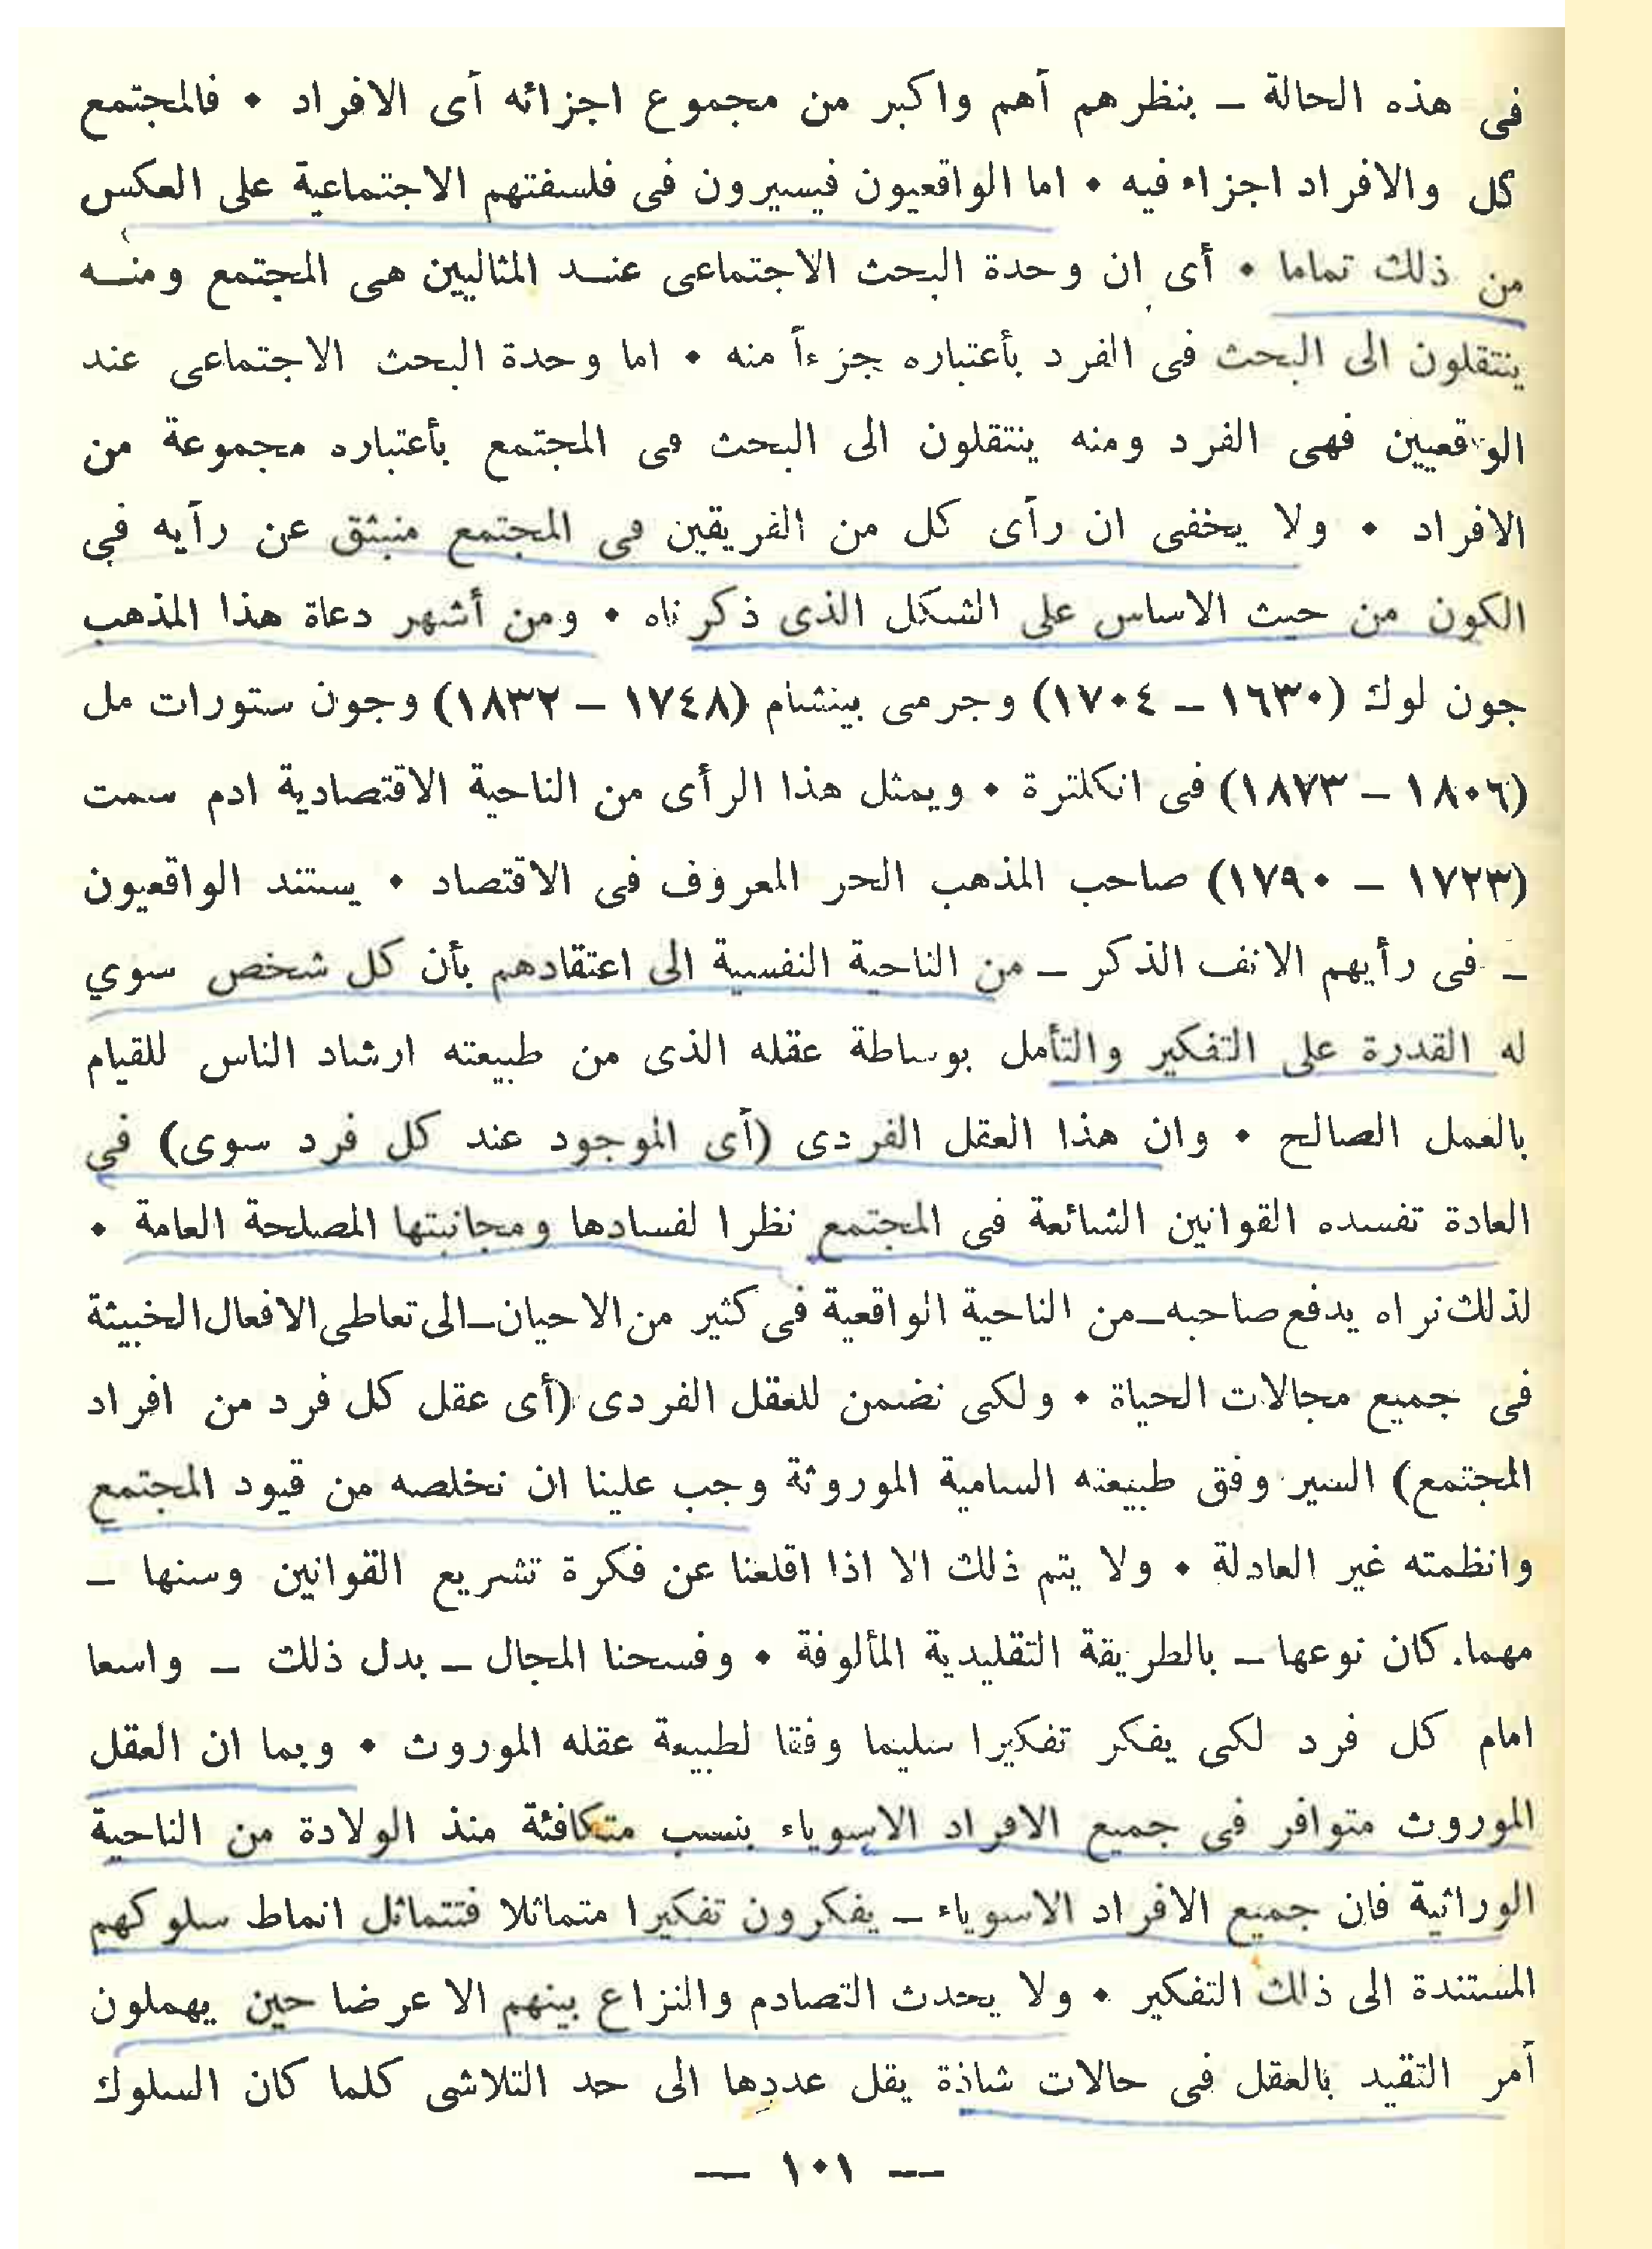 فى هذه الحالة – بنظرهم أهم واكبر من مجموع اجزائه أى الافراد • فالمجتمع
كل والافراد اجزاء فيه • اما الواقعيون فيسيرون فى فلسفتهم الاجتماعية على العكس
من ذلك تماما • أى ان وحدة البحث الاجتماعى عنــد المثاليين هى المجتمع ومنــه
ينتقلون الى البحث فى الفرد بأعتباره جزءاً منه • اما وحدة البحث الاجتماعى عند
الواقعيين فهى الفرد ومنه ينتقلون الى البحث فى المجتمع بأعتباره مجموعة من
الافراد • ولا يخفى ان رأى كل من الفريقين فى المجتمع منبثق عن رأيه في
الكون من حيث الاساس على الشكل الذى ذكرناه • ومن أشهر دعاة هذا المذهب
جون لوك (١٦٣٠ – ١٧٠٤) وجرمى بينثام (١٧٤٨ – ١٨٣٢) وجون ستورات مل
(١٨٠٦ – ١٨٧٣) فى انكلترة • ويمثل هذا الرأى من الناحية الاقتصادية ادم سمت
(١٧٢٣ – ١٧٩٠) صاحب المذهب الحر المعروف فى الاقتصاد • يستند الواقعيون
– فى رأيهم الانف الذكر – من الناحية النفسية الى اعتقادهم بأن كل شخص سوي
له القدرة على التفكير والتأمل بوساطة عقله الذى من طبيعته ارشاد الناس للقيام
بالعمل الصالح • وان هذا العقل الفردى (أى الموجود عند كل فرد سوى) في
العادة تفسده القوانين الشائعة فى المجتمع نظرا لفسادها ومجانبتها المصلحة العامة •
لذلك نراه يدفع صاحبه–من الناحية الواقعية فى كثير من الاحيان–الى تعاطى الافعال الخبيثة
فى جميع مجالات الحياة • ولكى نضمن للعقل الفردى (أى عقل كل فرد من افراد
المجتمع) السير وفق طبيعته السامية الموروثة وجب علينا ان نخلصه من قيود المجتمع
وانظمته غير العادلة • ولا يتم ذلك الا اذا اقلعنا عن فكرة تشريع القوانين وسنها –
مهما كان نوعها – بالطريقة التقليدية المألوفة • وفسحنا المجال – بدل ذلك – واسعا
امام كل فرد لكى يفكر تفكيرا سليما وفقا لطبيعة عقله الموروث • وبما ان العقل
الموروث متوافر فى جميع الافراد الاسوياء بنسب متكافئة منذ الولادة من الناحية
الوراثية فان جميع الافراد الاسوياء – يفكرون تفكيرا متماثلا فتتماثل انماط سلوكهم
المستندة الى ذلك التفكير • ولا يحدث التصادم والنزاع بينهم الا عرضا حين يهملون
أمر التقيد بالعقل فى حالات شاذة يقل عددها الى حد التلاشى كلما كان السلوك
— ١٠١ —